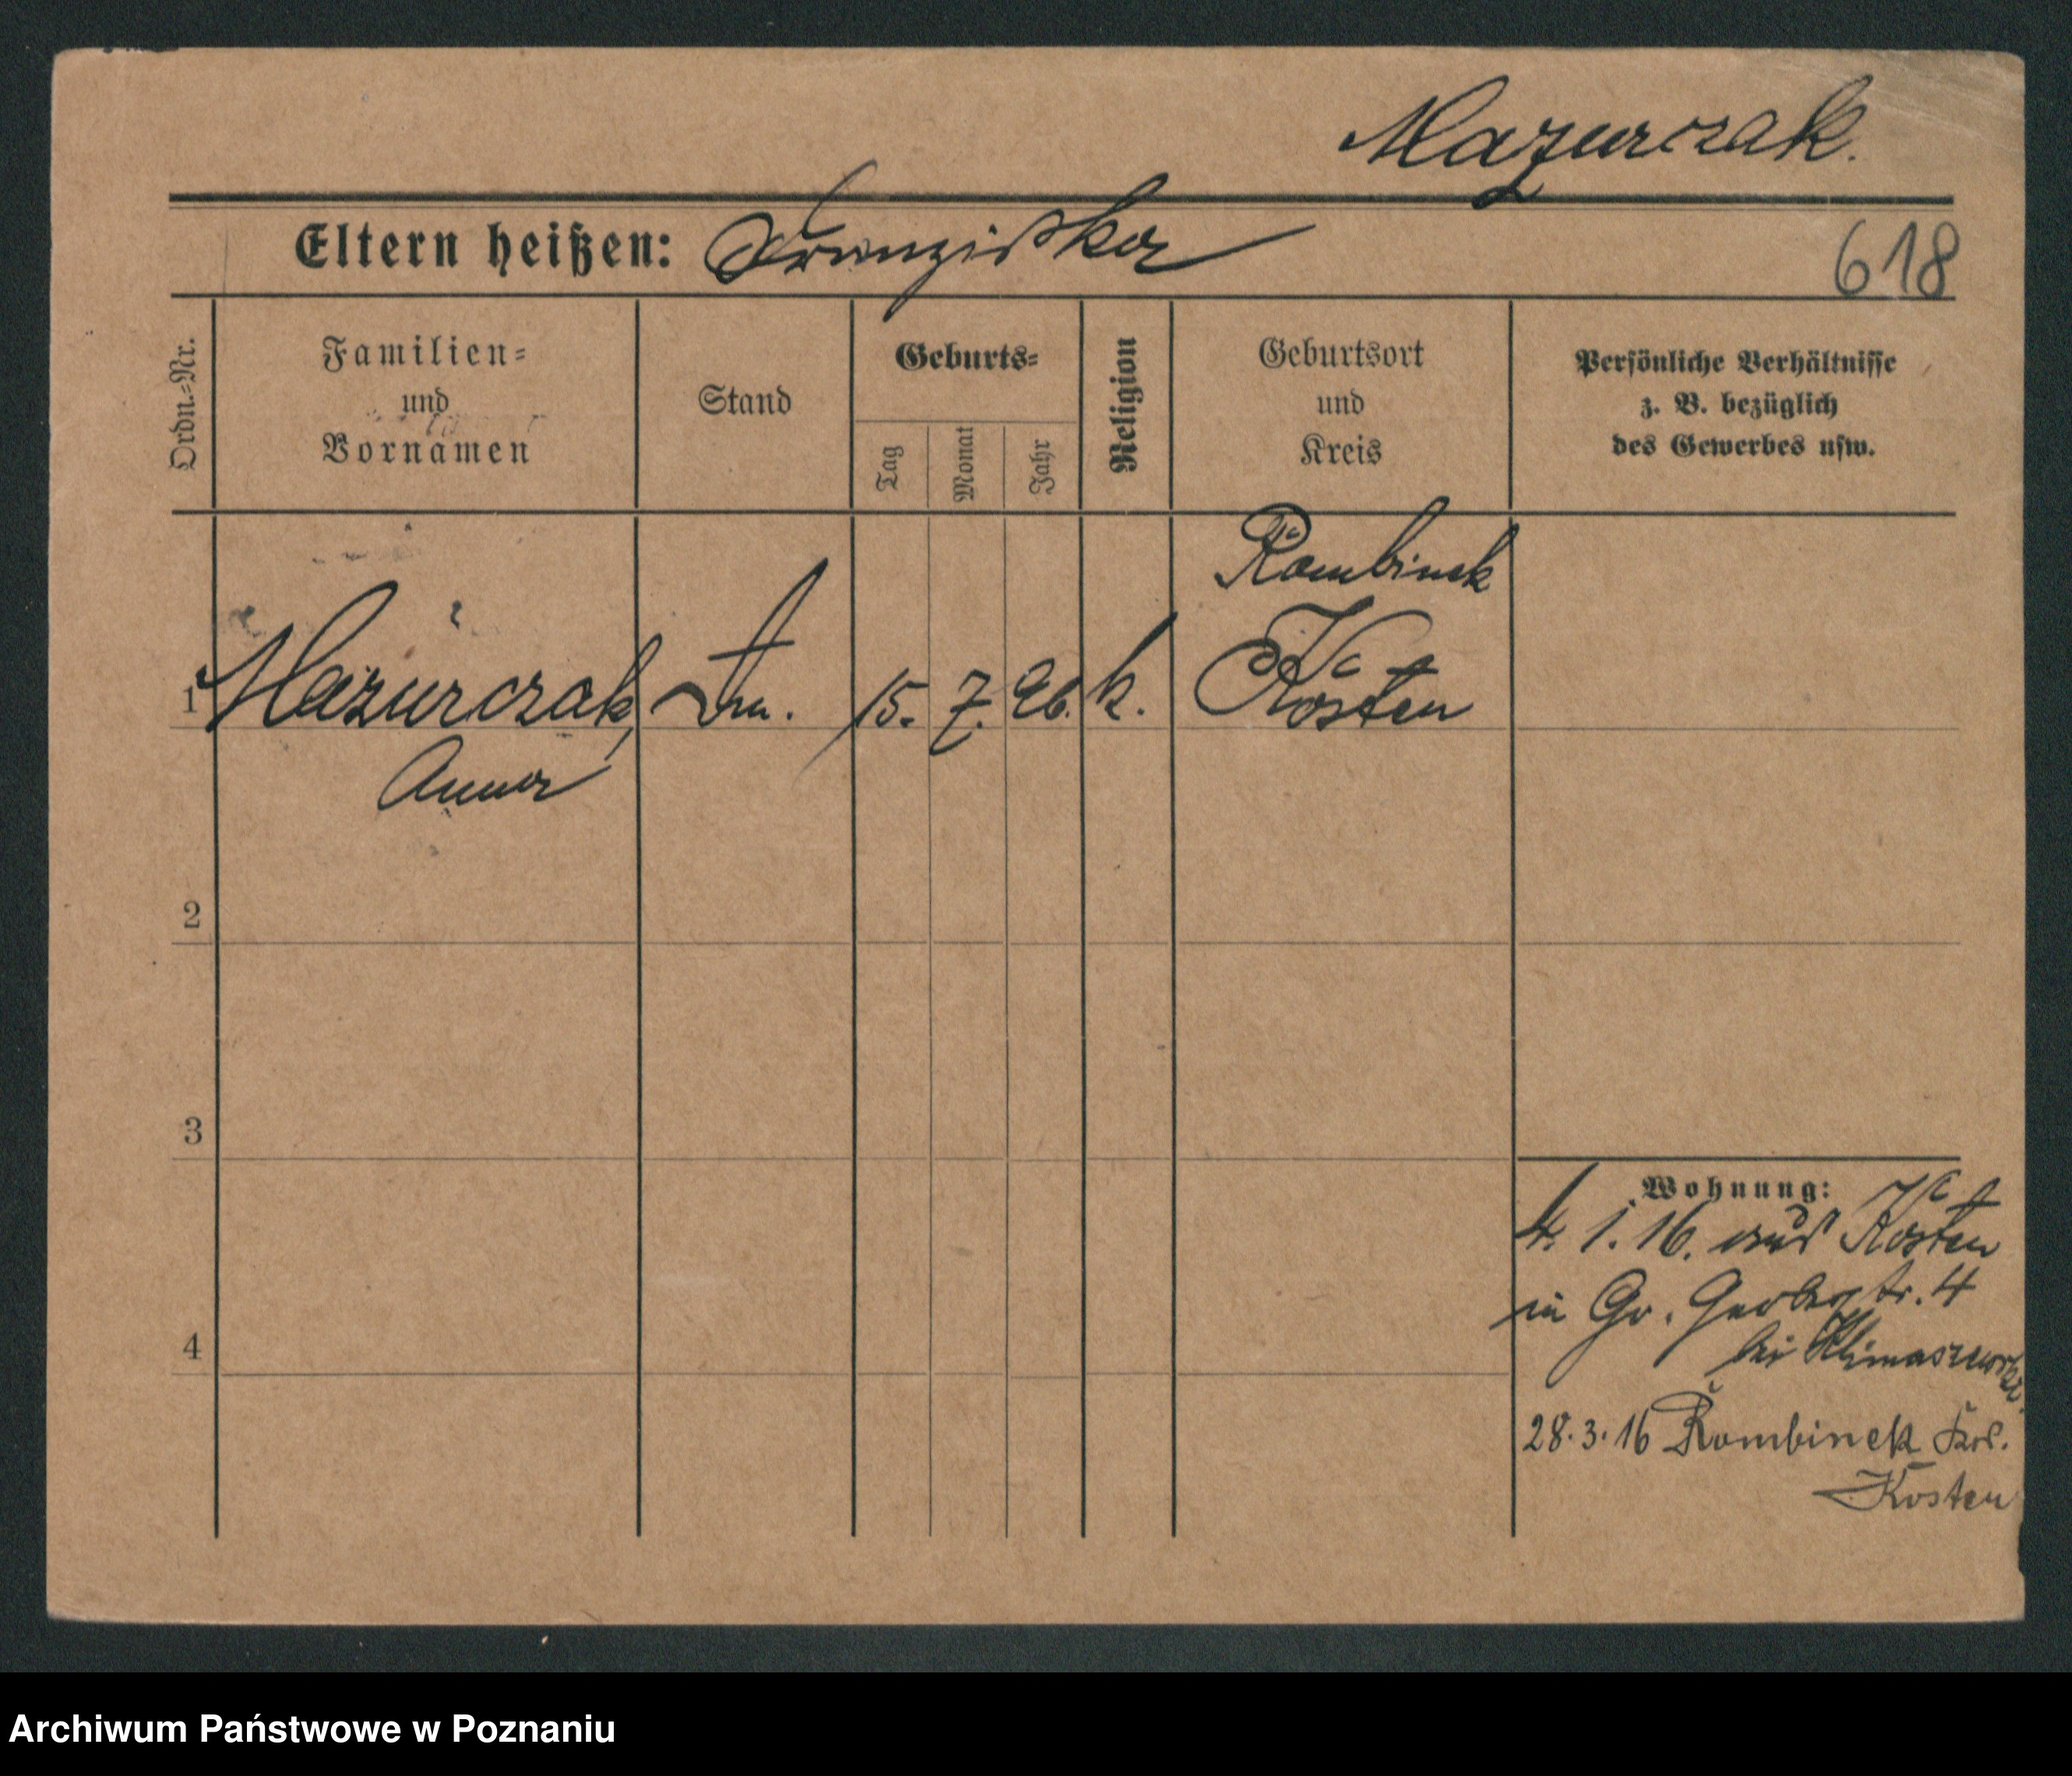 Mazurczak.
Eltern heißen: Franziska
618
Ordn.=Nr.
Familien=
und
Vornamen
Stand
Geburts=
Tag
Monat
Jahr
Religion
Geburtsort
und
Kreis
Persönliche Verhältnisse
z. B. bezüglich
des Gewerbes usw.
Rombinek
1 Mazurczak, 15. 7. 96. k. Kosten
Anna
2
3
4
Wohnung:
4. 1. 16. aus Kosten
in Gr. Gerberstr. 4
bei Klimaszewska
28.3.16 Rombinek Krs.
Kosten
Archiwum Państwowe w Poznaniu